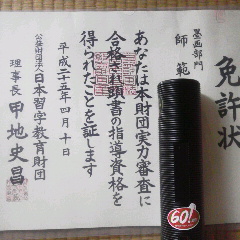 免許状
墨画部門
師範
あなたは本財団実力審査に
合格され頭書の指導資格を
得られたことを証します
平成二十五年四月十日
公益財団法人日本習字教育財団
理事長 甲地史昌
GO!